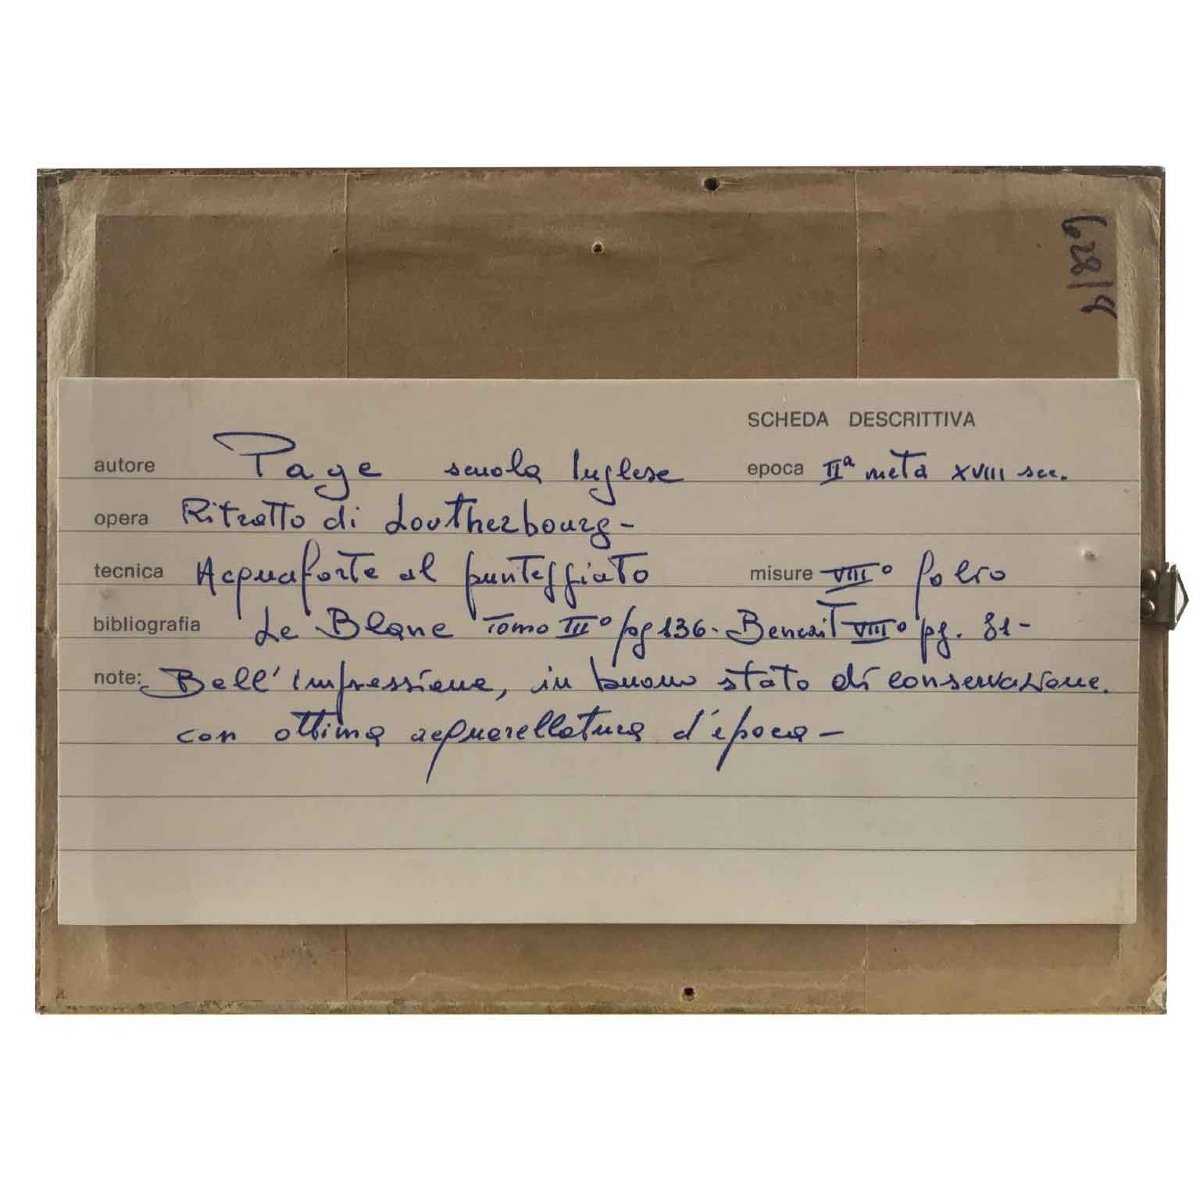 628/9
SCHEDA DESCRITTIVA
autore Page scuola Inglese epoca IIª metà XVIII sec.
opera Ritratto di Loutherbourg -
tecnica Acquaforte al punteggiato misure VIIIº folio
bibliografia Le Blanc Tomo IIIº pg 136 - Benezit VIIIº pg. 81 -
note: Bell'impressione, in buono stato di conservazione.
con ottima acquarellatura d'epoca -